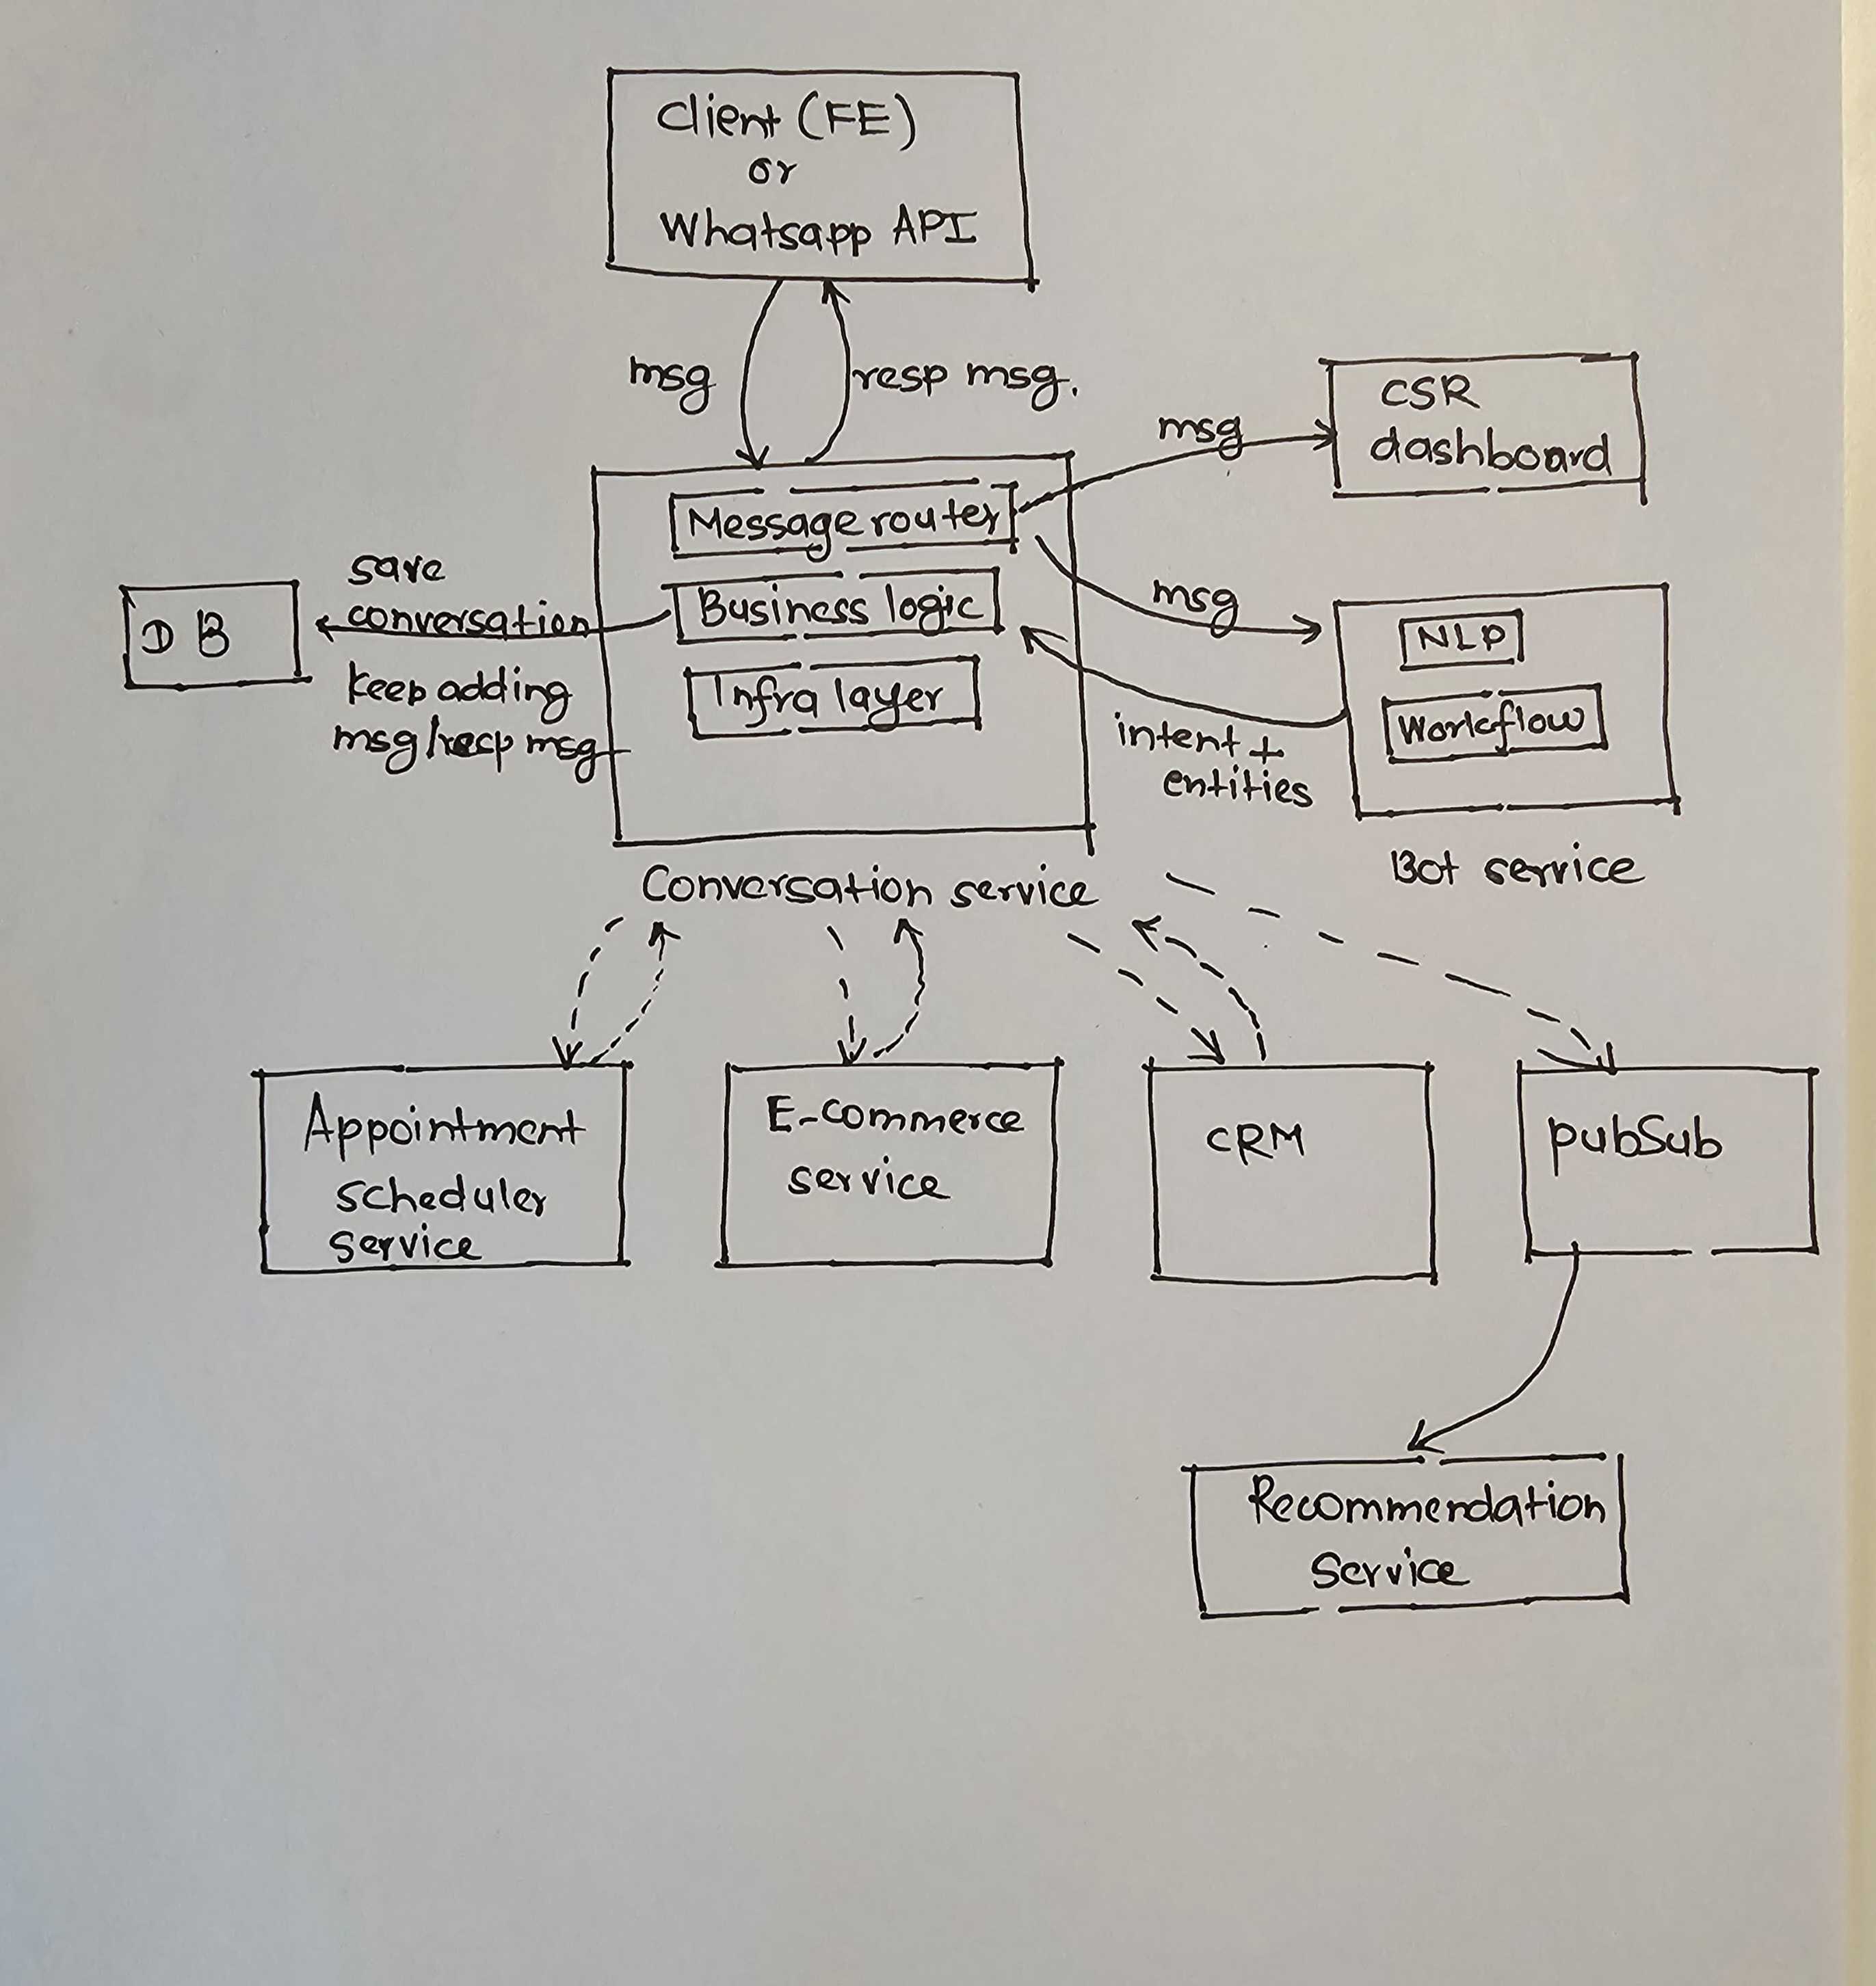 Client (FE)
or
Whatsapp API
msg
resp msg.
CSR
dashboard
msg
Message router
save
conversation
DB
Business logic
msg
NLP
keep adding
msg/resp msg
Infra layer
Workflow
intent +
entities
Bot service
Conversation service
Appointment
scheduler
service
E-commerce
service
CRM
pubSub
Recommendation
Service